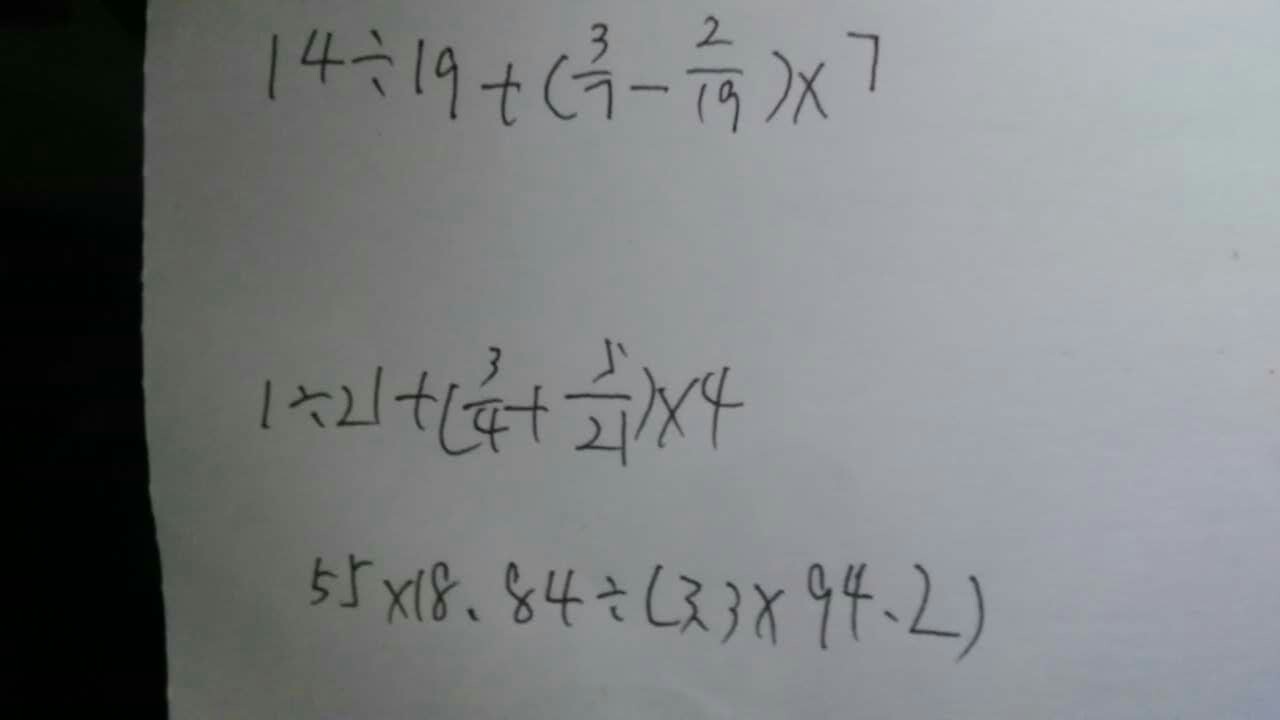 14÷19+(3/7-2/19)×7
1÷21+(3/4+5/21)×4
55×18.84÷(3.3×94.2)